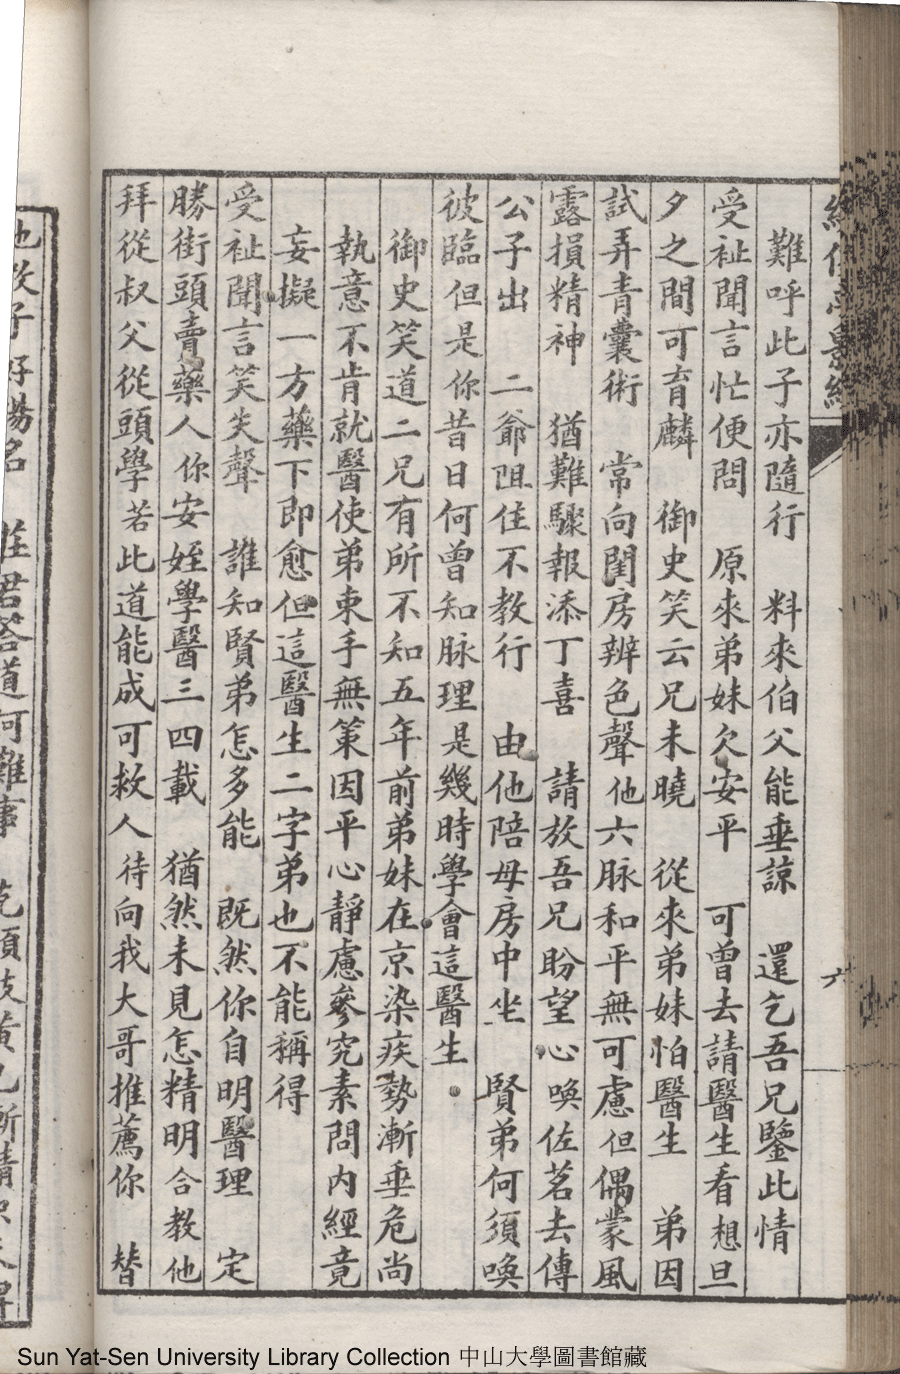 難呼此子亦隨行　料來伯父能垂諒　還乞吾兄鑒此情
受祉聞言忙便問　原來弟妹欠安平　可曾去請醫生看想旦
夕之間可育麟　御史笑云兄未曉　從來弟妹怕醫生　弟因
試弄青囊術　常向閨房辨色聲他六脉和平無可慮但偶蒙風
露損精神　猶難驟報添丁喜　請放吾兄盼望心喚佐茗去傳
公子出　二爺阻住不教行　由他陪母房中坐　賢弟何須喚
彼臨但是你昔日何曾知脉理是幾時學會這醫生
御史笑道二兄有所不知五年前弟妹在京染疾勢漸垂危尚
執意不肯就醫使弟束手無策因平心靜慮參究素問内經竟
妄擬一方藥下即愈但這醫生二字弟也不能稱得
受祉聞言笑失聲　誰知賢弟怎多能　既然你自明醫理　定
勝街頭賣藥人你安姪學醫三四載　猶然未見怎精明合教他
拜從叔父從頭學若此道能成可救人待向我大哥推薦你　替
六
Sun Yat-Sen University Library Collection 中山大學圖書館藏